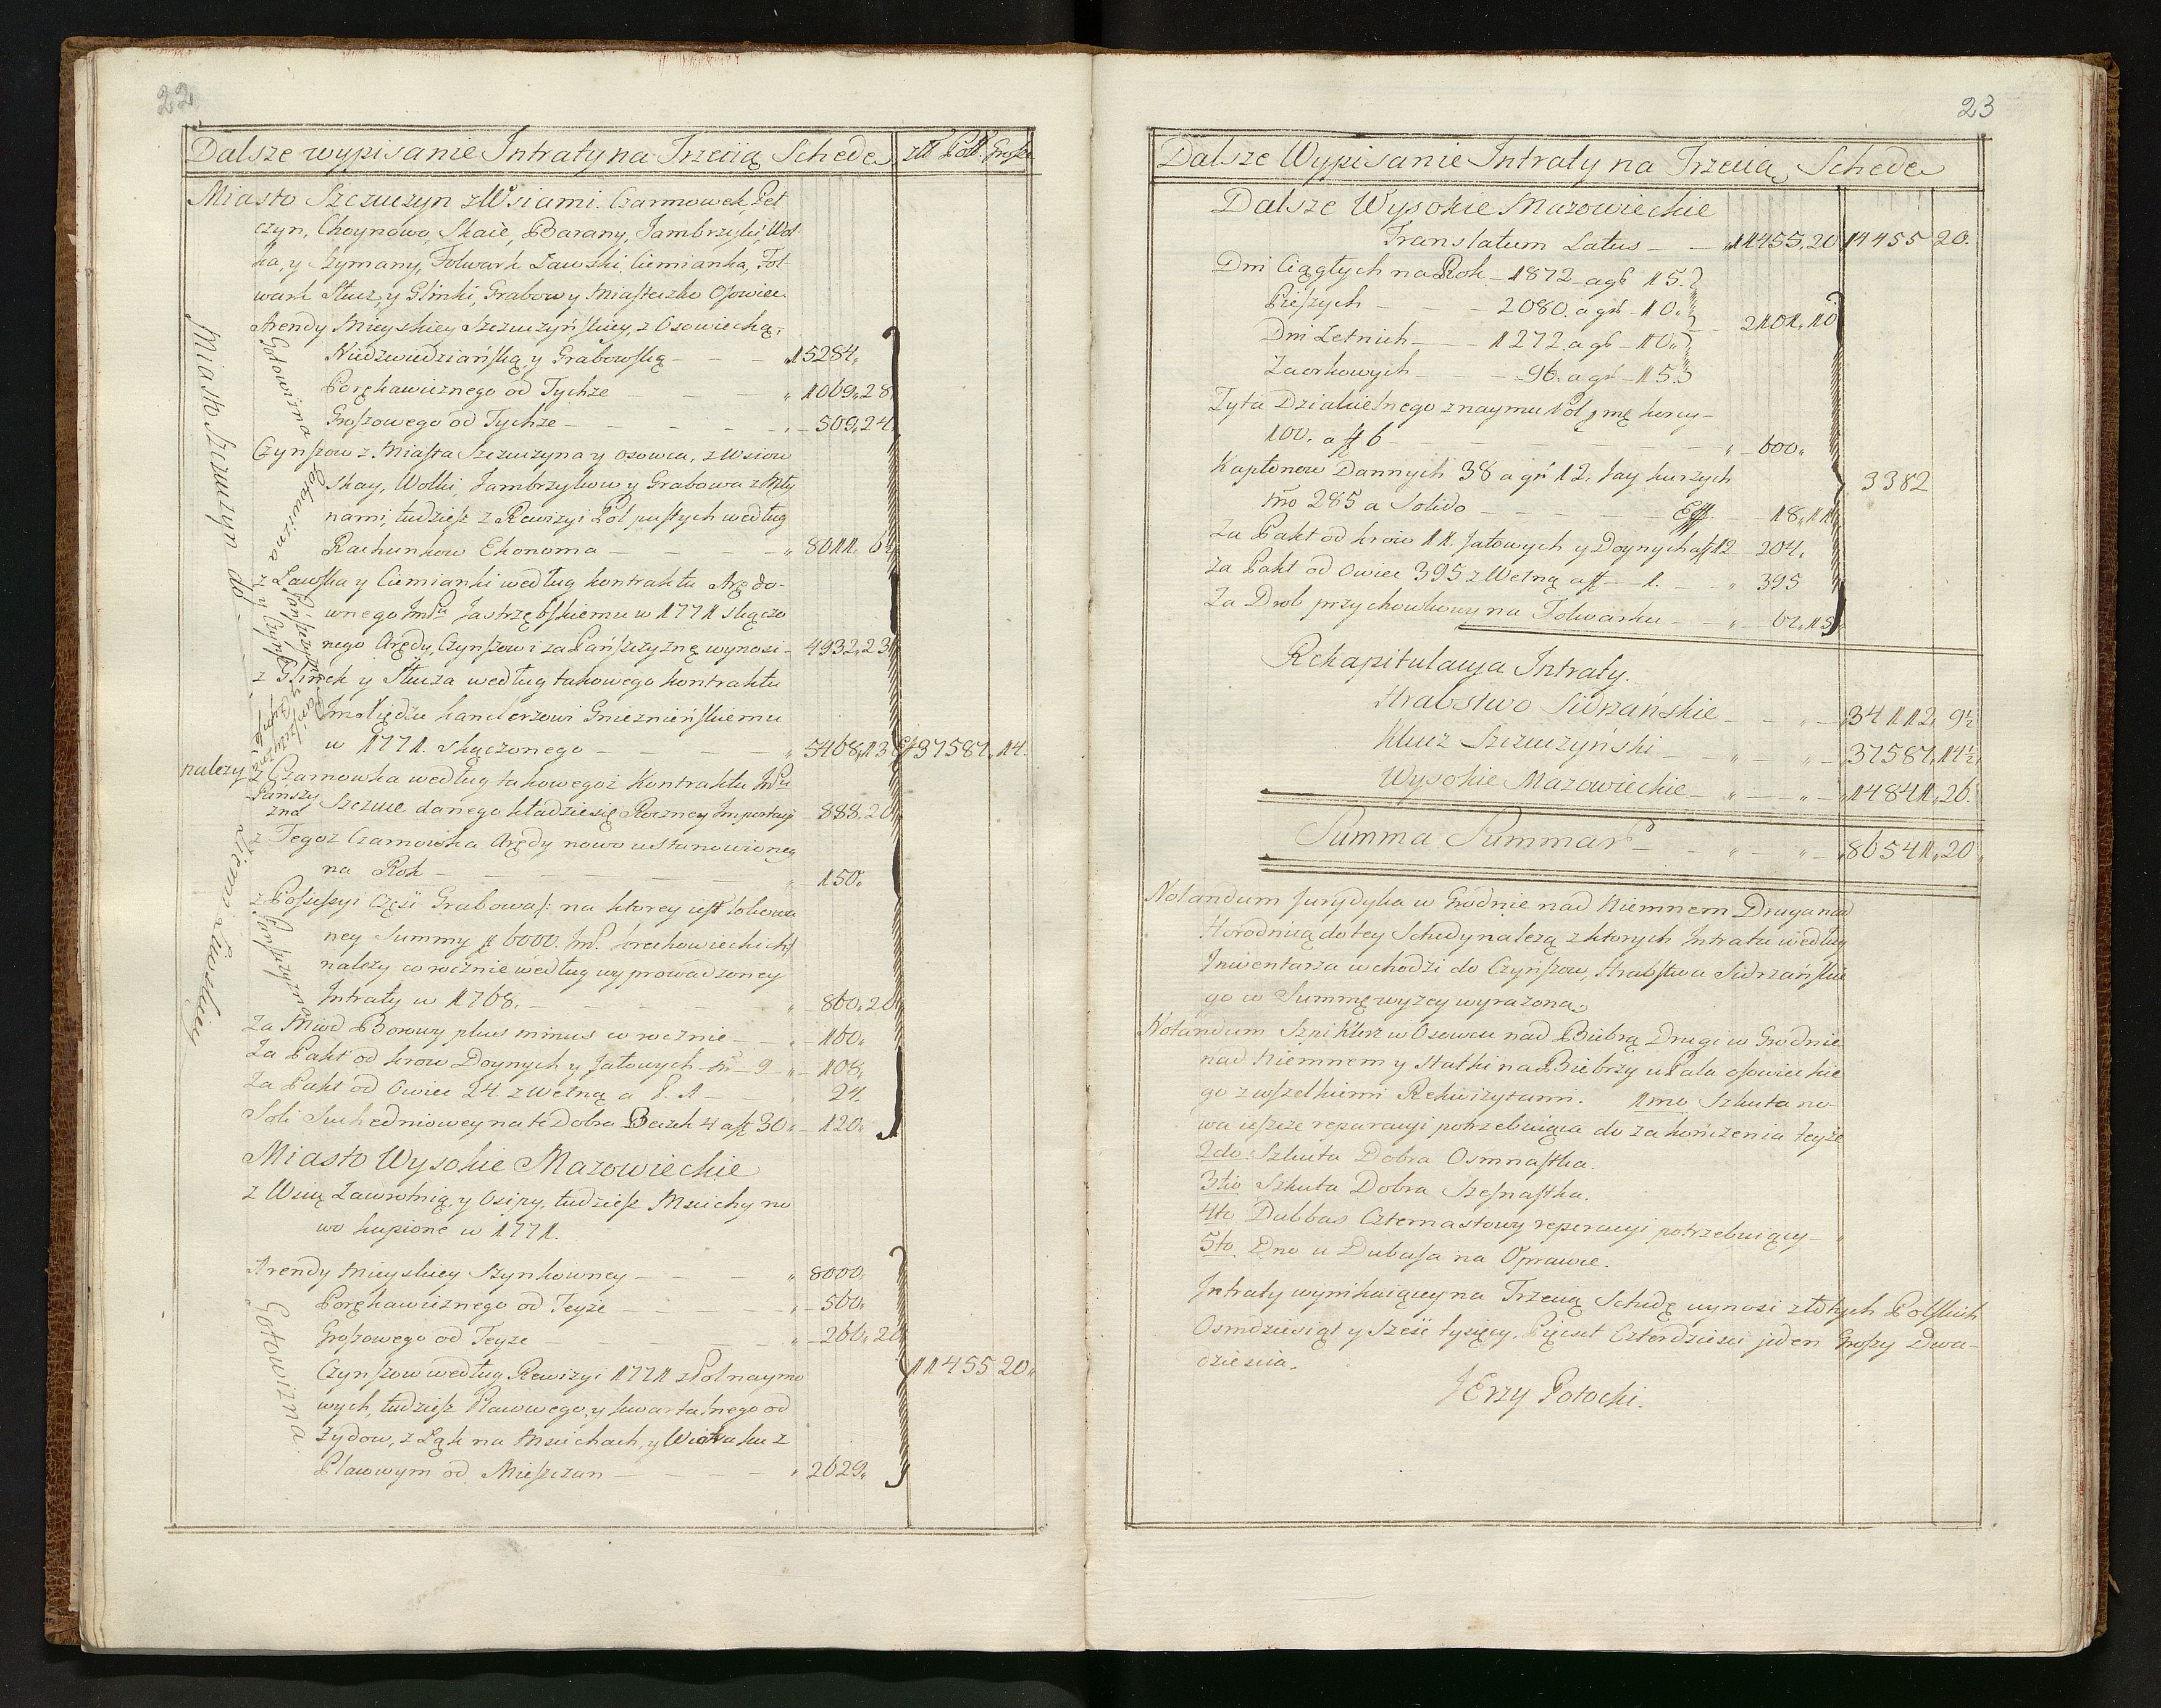 22
Dalsze wypisanie Intraty na Trzecią Schedę złł Poll. Grosze
Miasto Szczuczyn z Wsiami. Czarnowek, Pet
czyn, Choynowo, Skaie, Barany, Jambrzyki, Wol
ka, y Szymany, Folwark Ławski, Ciemianka, Fol-
wark Słucz, y Glinki, Grabow y Miasteczko Osowiec
Arendy Mieyskiey Szczuczyńskiey, z Osowiecką,
Niedzwiedziańską, y Grabowską — 15284„
Porękawicznego od Tychże — „ 1069„28
Groszowego od Tychże — 509„24
Czynszow z Miasta Szczuczyna y Osowca, z Wsiow
Skay, Wolki, Jambrzykow y Grabowa z Mły
nami, tudziesz z Rewizyi Pol pustych według
Rachunkow Ekonoma — „ 8011„ 6½
z Ławska y Ciemianki według kontraktu Arędo-
wnego ImPu Jastrzębskiemu w 1771 słączo
nego Arędy, Czynszow i za Pańszczyznę wynosi - 4932„23
z Glinek y Słucza według takowego kontraktu
Imć Xiędzu kanclerzowi Gnieznieńskiemu
w 1771. słączonego — „ 5468„13 Ef 37587„14.
z Czarnowka według takowegoż Kontraktu ImPu
Szczuce danego kładzie się Roczney Importacyi - 888„20
z Tegoż Czarnowka Arędy nowo ustanowioney
na Rok — „ 150„
z Possessyi Częsci Grabowa /: na ktorey jest lokowa
ney Summy # 6000. ImP. Krechowieckich :/
należy corocznie według wyprowadzoney
Intraty w 1768. — „ 860„20
Za Miod Borowy plus minus corocznie — „ 160„
Za Pakt od krow Doynych y Jałowych No 9 „ 108„
Za Pakt od Owiec 24. z Wełną a f. 1 — 24.
Soli Suchedniowey na te Dobra Beczek 4 a ff 30 „ 120„
Miasto Szczuczyn do
należy
Ziemi
Gotowizna
Gotowizna z Pańszczyzną
Pańszczy
zna
Pańszczyzna
Miasto Wysokie Mazowieckie
z Wsią Zawrotnią, y Osipy, tudziesz Mscichy no
wo kupione w 1771.
Arendy Mieyskiey Szynkowney — „ 8000„
Porękawicznego od Teyże — „ 560„
Groszowego od Teyże — „ 266„20
Czynszow według Rewizyi 1771 z Pol naymo
wych, tudziesz Placowego, y kwartalnego od
Zydow, z Łąk na Mscichach, y Wiatraku z
Placowym od Mieszczan — „ 2629„
11455 20„
Gotowizna.
23
Dalsze Wypisanie Intraty na Trzecią Schedę
Dalsze Wysokie Mazowieckie
Translatum Latus — „11455„20 11455 20.
Dni Ciągłych na Rok - 1872 a gł 15.
Pieszych — 2080. a gł - 10.„
Dni Letnich — 1272. a gł - 10„
Zaorkowych — 96. a gł - 15
2101„10
Zyta Dzialcielnego z naymu Pol, mę korcy-
100. a ff 6 — „ 600„
Kapłonow Dannych 38 a gł 12, Jay kurzych
No 285 a Solido — Eff 18„11
3382
Za Pakt od krow 11. Jałowych y Doynych a ff 12 - 204„
Za Pakt od Owiec 395 z Wełną a ff — 1. „ 395
Za Drob przychowkowy na Folwarku — „ 62„15
Rekapitulacya Intraty.
Hrabstwo Sidrzańskie — „ 34112„ 9½
Klucz Szczuczyński — „ 37587„14½
Wysokie Mazowieckie — „ 14841„26.
Summa Summar — „ 86541„20
Notandum Jurydyka w Grodnie nad Niemnem Druga nad
Horodnicą do tey Schedy należą z ktorych Intrata według
Inwentarza wchodzi do Czynszow, Hrabstwa Sidrzańskie
go w Summę wyzey wyrazoną,
Notandum Szpiklerz w Osowcu nad Biebrzą Drugi w Grodnie
nad Niemnem y Statki na Biebrzy u Pala osowieckie
go z wszelkiemi Rekwizytami. 1mo Szkuta no-
wa jeszcze reparacyi potrzebuiąca do zakończenia teyże
2do. Szkuta Dobra Osmnastka.
3tio Szkuta Dobra Szesnastka.
4to Dubbas Czternastowy reperacyi potrzebuiący —
5to Dno u Dubasa na Oprawie.
Intraty wynikaiącey na Trzecią Schedę wynosi złotych Polskich
Osmdziesiąt y Sześć tysięcy, Pięcset Czterdziesci jeden Groszy Dwa-
dziescia.
JErzy Potocki.